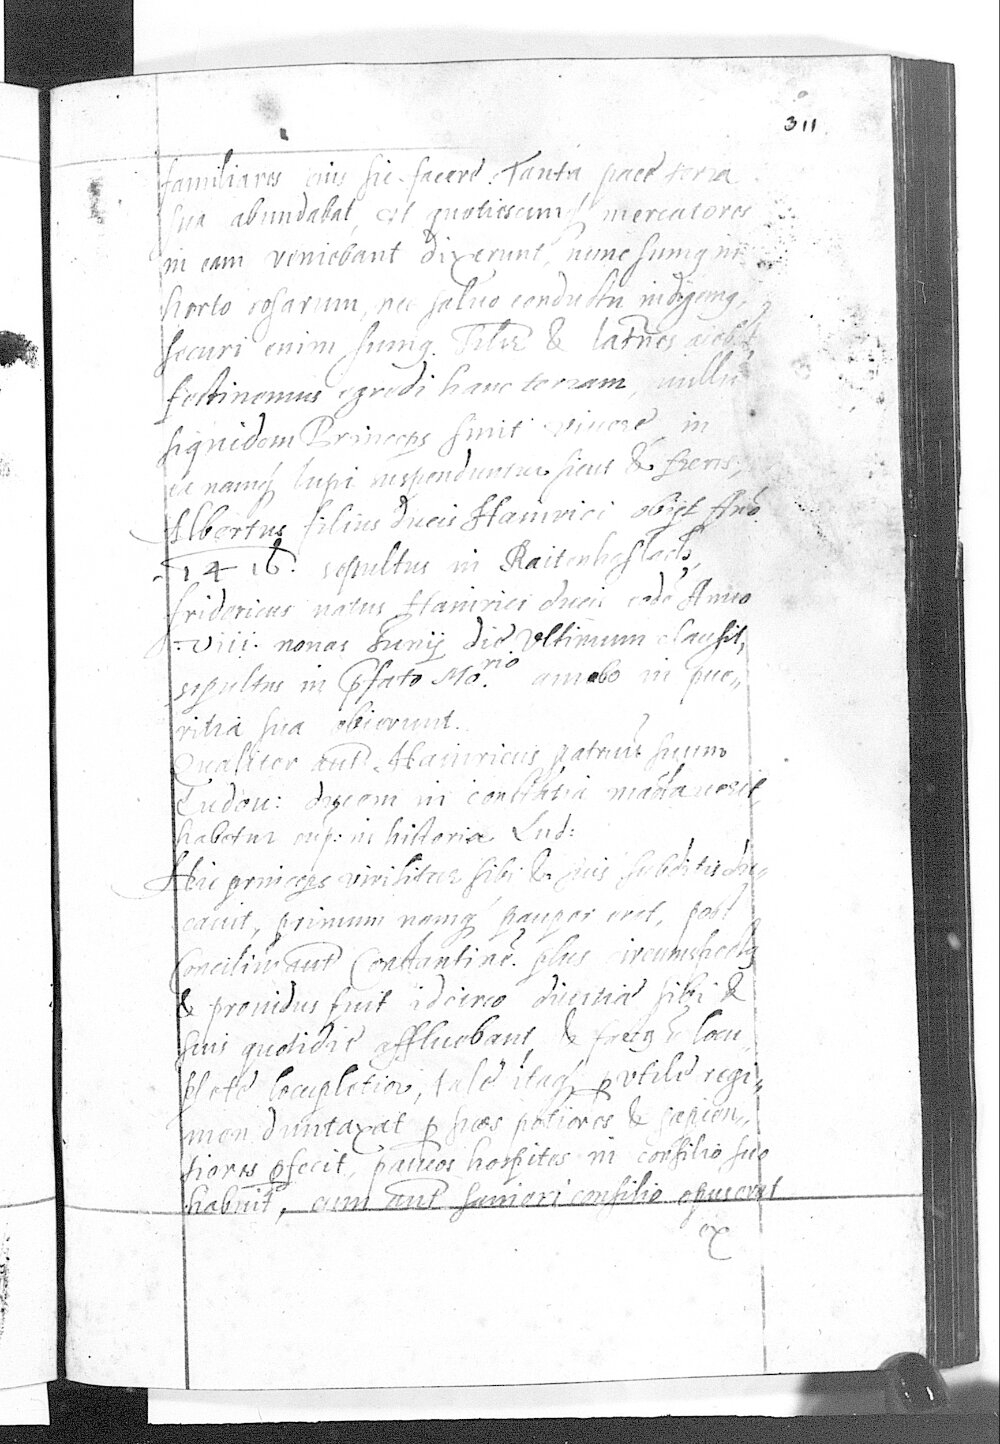 311
familiares eius sic facere. Tanta pace terra
sua abundabat, ut quotiescunq mercatores
in eam veniebant dixerunt, nunc sumq in
horto rosarum, nec saluo conductu indigemq,
securi enim sumq. & latrones
festinemus egredi hanc terram, nullū
siquidem Princeps sinit viuere, in
ea namq lupi suspenduntur sicut & fures,
Albertus filius ducis Hainrici obijt Año
1416. sepultus in Raitenhaslach,
fridericus natus Hainrici ducis eodē Anno
VIII. nonas Junij diē vltimum clausit,
sepultus in pfato Mo.rio ambo in pue„
ritia sua obierunt.
Qualiter aut Hainricus patruū suum
Ludou: ducem in constātia
habetur sup: in historia Lud:
Hic princeps viriliter sibi & suis subditis
primum namq pauper erat, post
Conciliū aut Constantinē. plus circumspectq
& prouidus fuit idcirco diuitiæ sibi &
suis quotidiē affluebant, &
locupletior, talē itaq vtilē regi„
men duntaxat p suos potiores & sapien„
tiores pfecit, paucos hospites in consilio suo
habuit, cum aut saniori consilio opus erat
ex